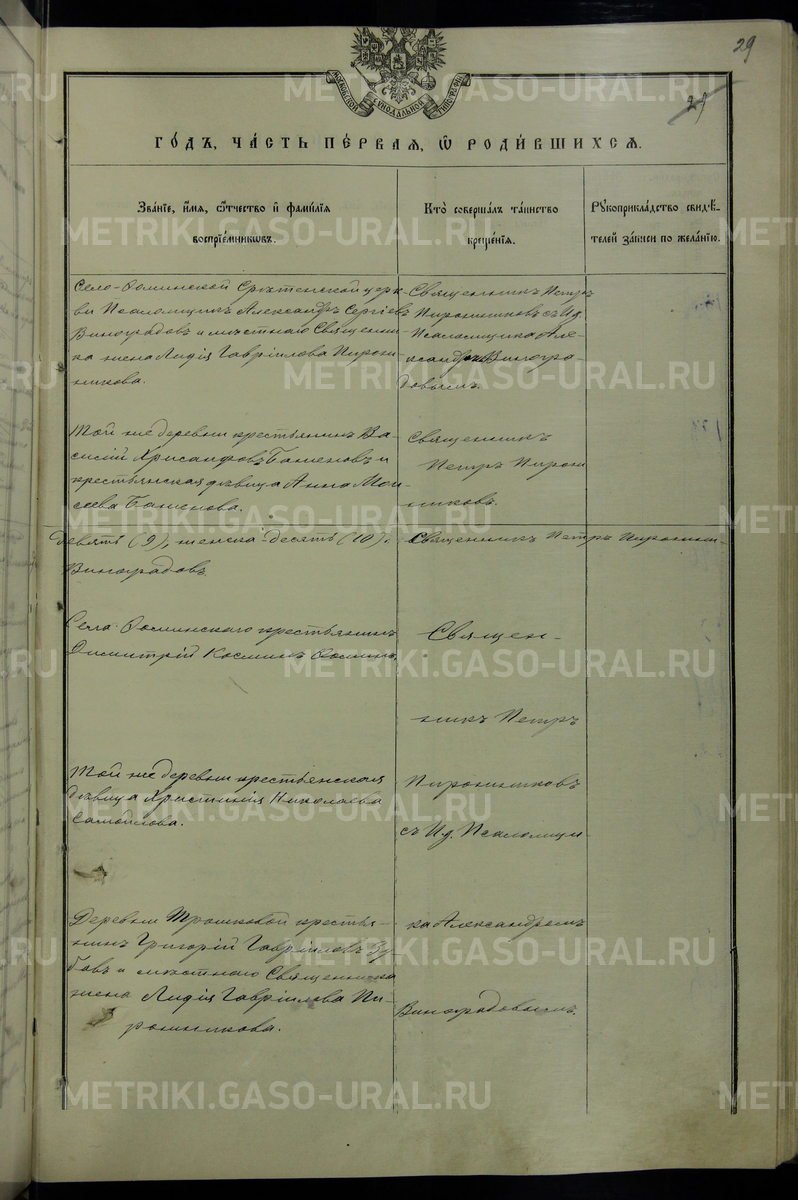 29
29
МОСКОВСКОЙ СѴНОДАЛЬНОЙ ТИПОГРАФIИ
ГО́ДЪ, ЧА́СТЬ ПЕ́РВАЯ, Ѿ РОДИ́ВШИХСЯ.
Зва́нїе, и́мя, о́тчество и фами́лїя воспрїе́мниковъ.
Кто̀ соверша́лъ та́инство креще́нїя.
Рꙋкоприкла́дство свидѣ́телей за́писи по жела́нїю.
Село-Фоминской Срѣтенской церк-
ви Псаломщикъ Александръ Сергiевъ
Виноградовъ и мѣстнаго Священни-
ка жена Лидiя Гаврiилова Пирож-
никова.
Священникъ Петръ
Пирожниковъ съ Ид.
Псаломщика Але-
ксандръ Виногра-
довымъ.
Той же деревни крестьянинъ Ва-
силiй Хрисанфовъ Баженовъ и
крестьянская дѣвица Анна Мои-
сеева Баженова.
Священникъ
Петръ Пирож
никовъ.
девять (9), женска-десять (10).
Виноградовъ
Священникъ Петръ Пирожни-
Села Фоминскаго крестьянинъ
Димитрiй Косминъ Фоминъ.
Священ-
никъ Петръ
Той же деревни крестьянская
дѣвица Христинiя Николаева
Самойлова.
Пирожниковъ
съ Ид. Псаломщи-
Деревни Трошковой крестья-
нинъ Григорiй Гаврiиловъ Зу-
бовъ и мѣстнаго Священника
жена Лидiя Гаврiилова Пи-
рожникова.
ка Александромъ
Виноградовымъ.
METRIKI.GASO-URAL.RU